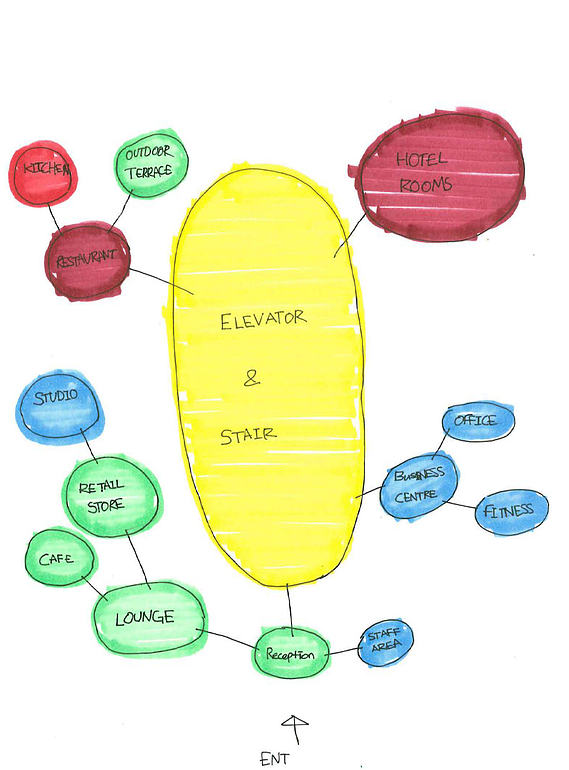 KITCHEN
OUTDOOR
TERRACE
HOTEL
ROOMS
RESTAURANT
ELEVATOR
&
STAIR
STUDIO
OFFICE
BUSINESS
CENTRE
RETAIL
STORE
FITNESS
CAFE
LOUNGE
STAFF
AREA
Reception
ENT